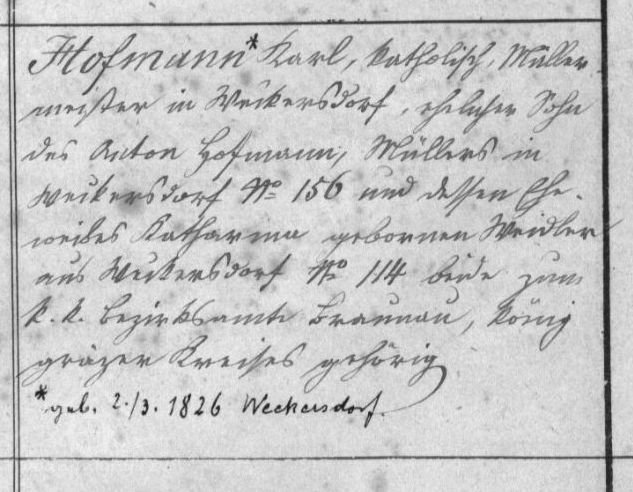 Hofmann* Karl, katholisch, Müller-
meister in Weckersdorf, ehelicher Sohn
des Anton Hofmann, Müllers in
Weckersdorf No 156 und dessen Ehe-
weibes Katharina gebornen Weidler
aus Weckersdorf No 114 beide zum
k. k. Bezirksamte Braunau, König
gräzer Kreises gehörig
* geb. 2./3. 1826 Weckersdorf.